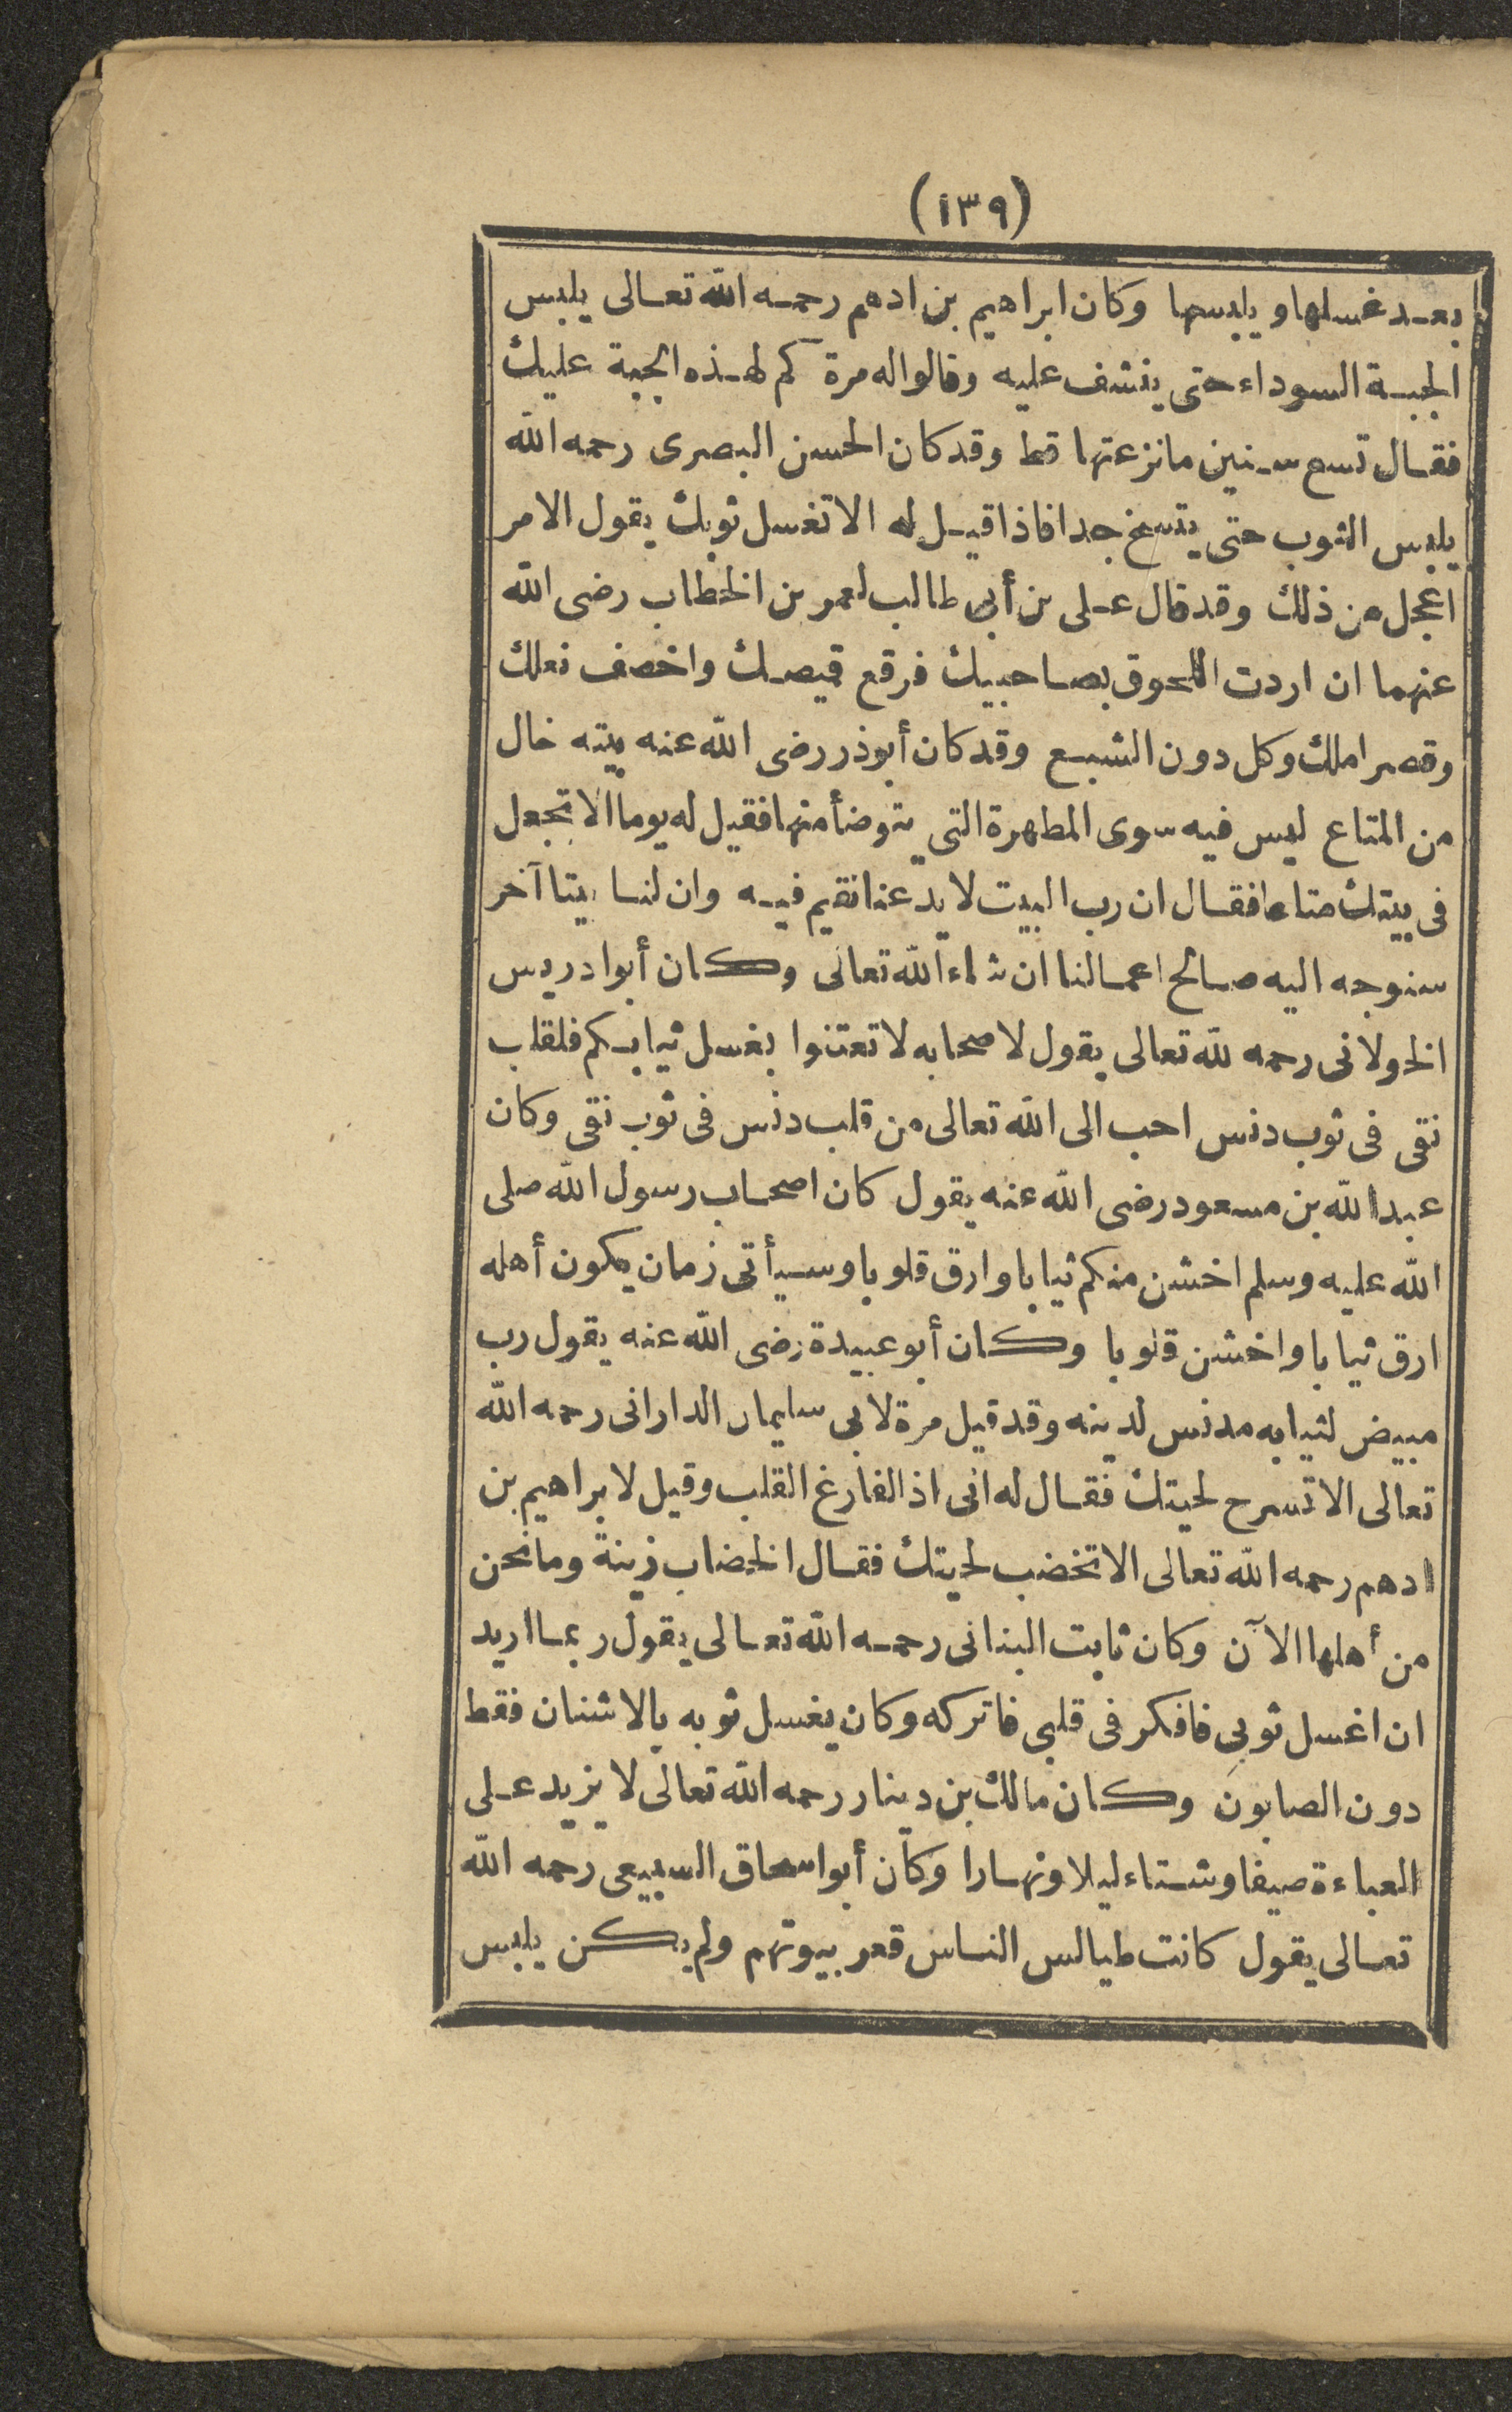 (١٣٩)
بعد غسلها ويلبسها وكان ابراهيم بن ادهم رحمه الله تعالى يلبس
الجبة السوداء حتى ينشف عليه وقالوا له مرة كم لهذه الجبة عليك
فقال تسع سنين ما نزعتها قط وقد كان الحسن البصرى رحمه الله
يلبس الثوب حتى يتسخ جدا فاذا قيل له الا تغسل ثوبك يقول الامر
اعجل من ذلك وقد قال على بن أبى طالب لعمر بن الخطاب رضى الله
عنهما ان اردت اللحوق بصاحبيك فرقع قميصك واخصف نعلك
وقصر املك وكل دون الشبع وقد كان أبوذر رضى الله عنه بيته خال
من المتاع ليس فيه سوى المطهرة التى يتوضأ منها فقيل له يوما الا تجعل
فى بيتك متاعا فقال ان رب البيت لا يدعنا نقيم فيه وان لنا بيتا آخر
سنوجه اليه صالح اعمالنا ان شاء الله تعالى وكان أبوا دريس
الخولانى رحمه لله تعالى يقول لاصحابه لا تعتنوا بغسل ثيابكم فلقلب
نقى فى ثوب دنس احب الى الله تعالى من قلب دنس فى ثوب نقى وكان
عبدالله بن مسعود رضى الله عنه يقول كان اصحاب رسول الله صلى
الله عليه وسلم اخشن منكم ثيابا وارق قلوبا وسيأتى زمان يكون أهله
ارق ثيابا واخشن قلوبا وكان أبو عبيدة رضى الله عنه يقول رب
مبيض لثيابه مدنس لدينه وقد قيل مرة لابى سليمان الدارانى رحمه الله
تعالى الا تسرح لحيتك فقال له انى اذا لفارغ القلب وقيل لابراهيم بن
ادهم رحمه الله تعالى الا تخضب لحيتك فقال الخضاب زينة وما نحن
من أهلها الآن وكان ثابت البنانى رحمه الله تعالى يقول ربما اريد
ان اغسل ثوبى فافكر فى قلبى فاتركه وكان يغسل ثوبه بالاشنان فقط
دون الصابون وكان مالك بن دينار رحمه الله تعالى لا يزيد على
العباءة صيفا وشتاء ليلا ونهارا وكان أبواسحاق السبيعى رحمه الله
تعالى يقول كانت طيالس الناس قعر بيوتهم ولم يكن يلبس